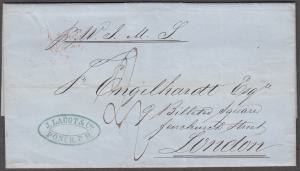 p W. I. M. S.
Fr Engelhardt Esqre
9 Billiter Square
fenchurch Street
London
J. LAGOT & Co
PONCE, P.R.